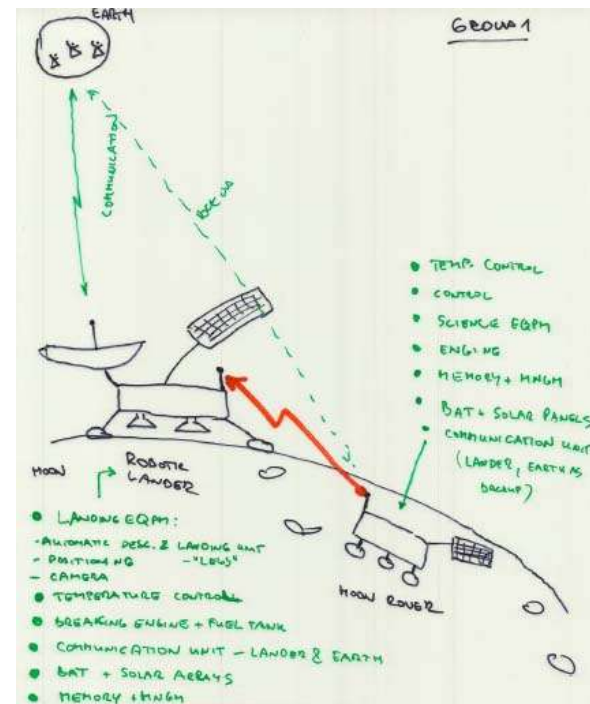 EARTH
GROUP 1
COMMUNICATION
BCK UP
TEMP. CONTROL
CONTROL
SCIENCE EQPM
ENGING
MEMORY + MNGM
BAT + SOLAR PANELS
COMMUNICATION UNIT
(LANDER, EARTH AS
BACKUP)
MOON
ROBOTIC
LANDER
MOON ROVER
LANDING EQPM:
- AUTOMATIC DESC. & LANDING UNIT
- POSITIONING - "LEGS"
- CAMERA
TEMPERATURE CONTROL
BREAKING ENGINE + FUEL TANK
COMMUNICATION UNIT - LANDER & EARTH
BAT + SOLAR ARRAYS
MEMORY + MNGM